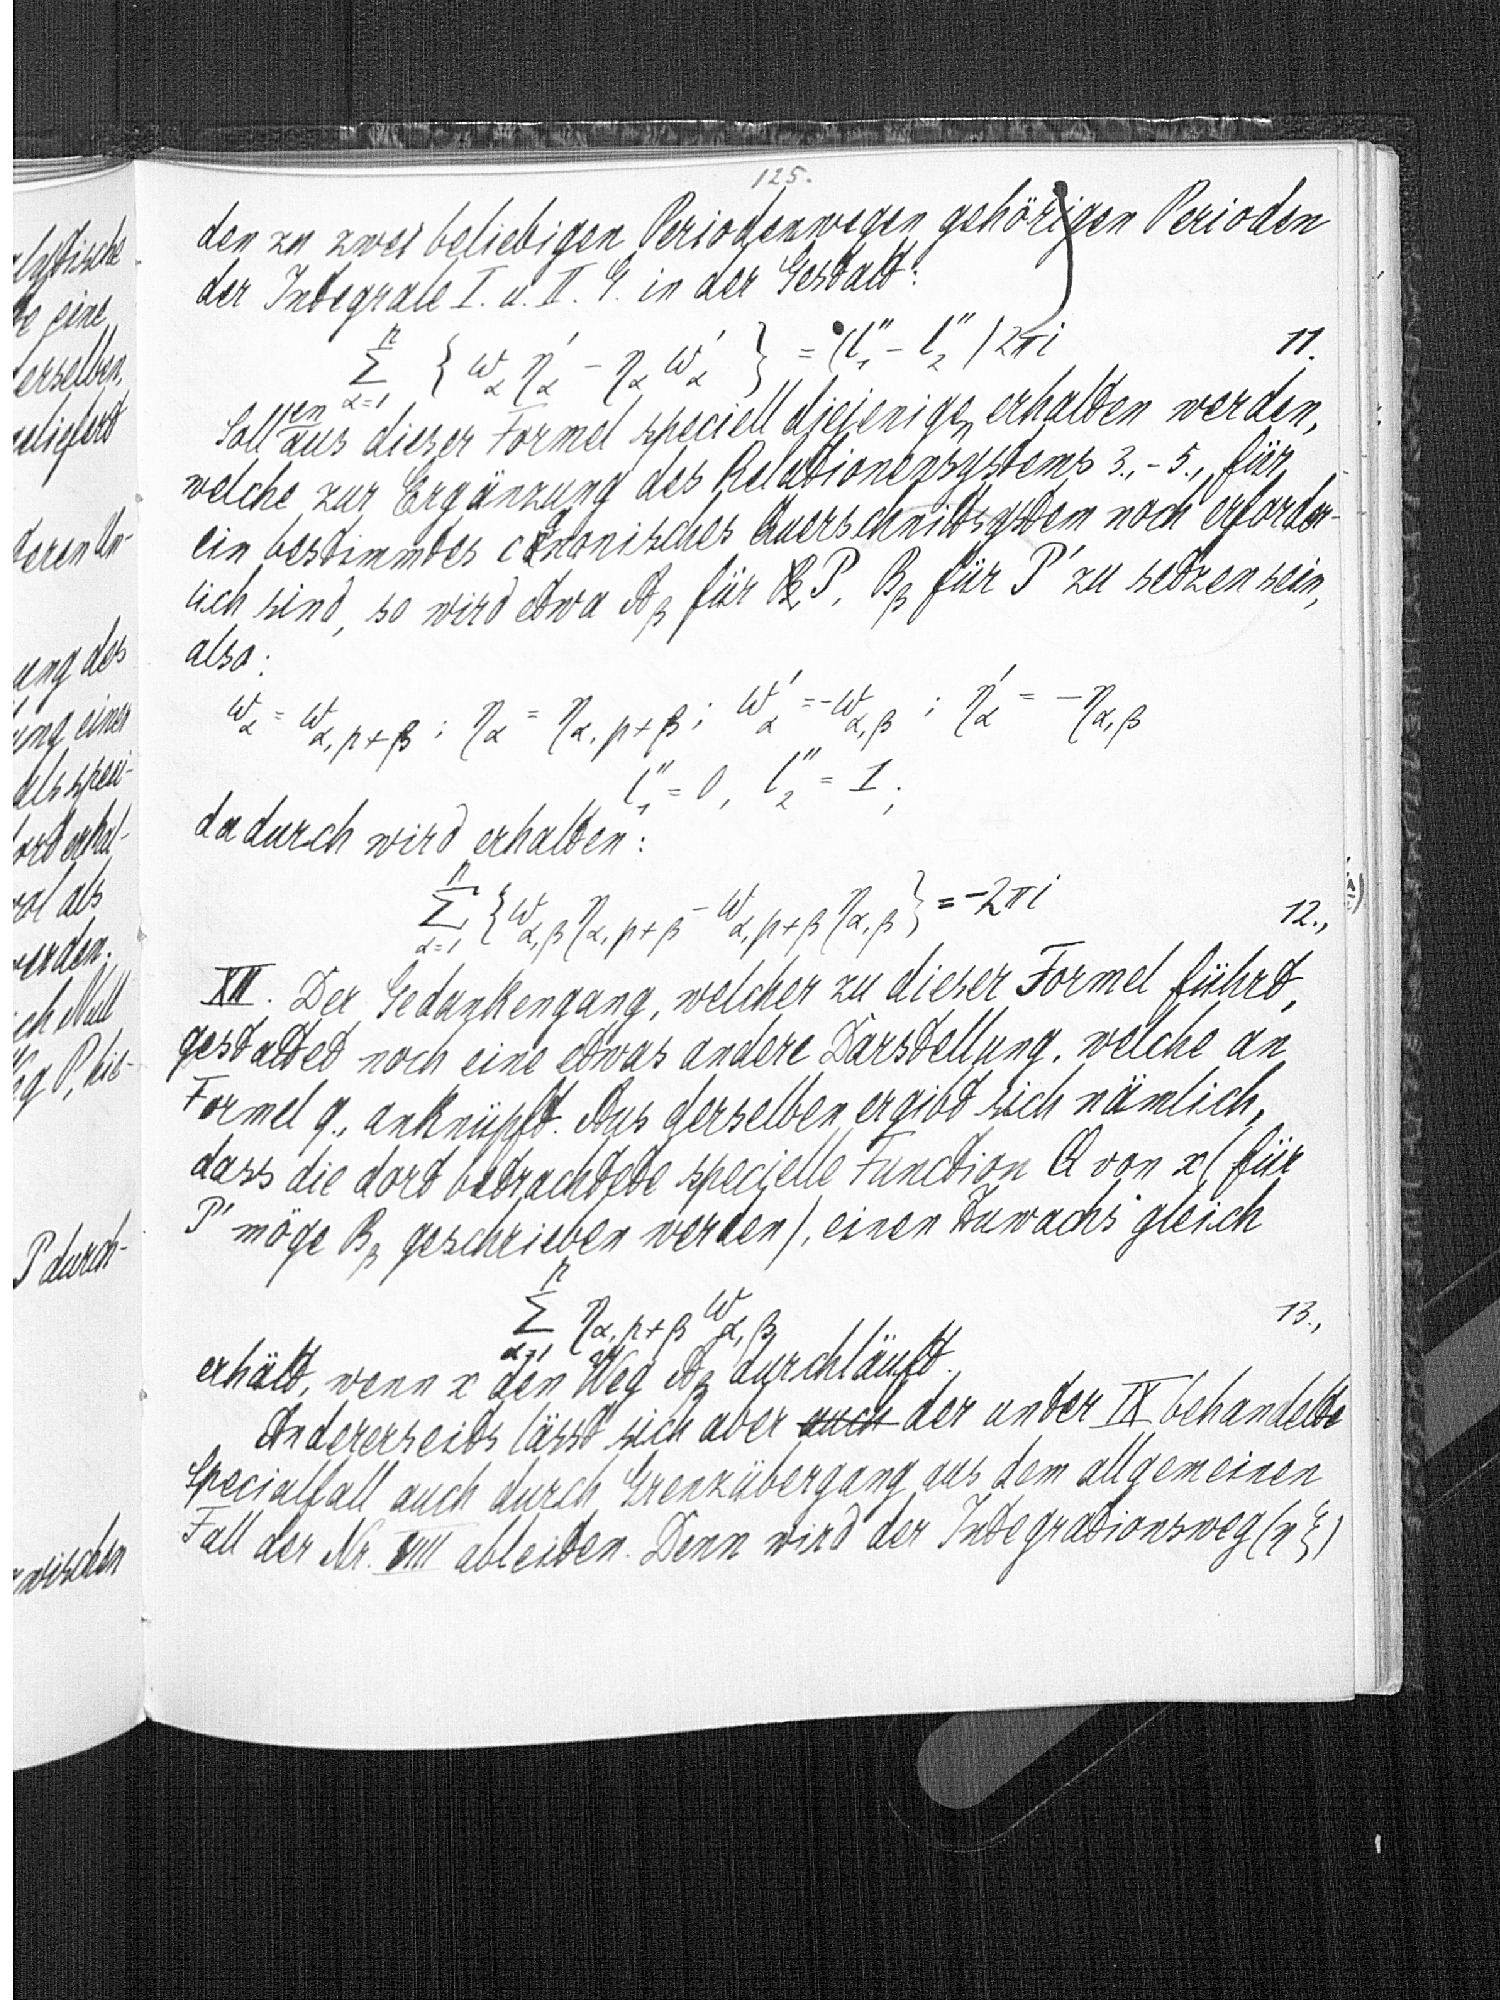 125.
den zu zwei beliebigen Periodenwegen gehörigen Perioden
der Integrale I. u. II. G. in der Gestalt:
n
Σ { ω_α η'_α − η_α ω'_α } = (l''_1 − l''_2) 2πi 11.
α=1
Sollen aus dieser Formel speciell diejenigen erhalten werden,
welche zur Ergänzung des Relationensystems 3.,-5., für
ein bestimmtes canonisches Querschnittsystem noch erforder-
lich sind, so wird etwa A_β für P, B_β für P' zu setzen sein,
also:
ω_α = ω_α,p+β ; η_α = η_α,p+β ; ω'_α = −ω_α,β ; η'_α = −η_α,β
l''_1 = 0, l''_2 = 1 ;
dadurch wird erhalten:
n
Σ { ω_α,β η_α,p+β − ω_α,p+β η_α,β } = −2πi 12.,
α=1
XII. Der Gedankengang, welcher zu dieser Formel führt,
gestattet noch eine etwas andere Darstellung, welche an
Formel 9., anknüpft. Aus derselben ergibt sich nämlich,
dass die dort betrachtete specielle Function Q von x (für
P' möge B_β geschrieben werden), einen Zuwachs gleich
n
Σ η_α,p+β ω_α,β 13.,
α=1
erhält, wenn x den Weg A_β durchläuft.
Andererseits lässt sich aber auch der unter IX behandelte
Specialfall auch durch Grenzübergang aus dem allgemeinen
Fall der Nr. VIII ableiten. Denn wird der Integrationsweg (η ξ)